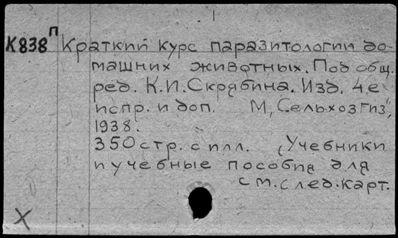 К838п Краткий курс паразитологии до-
машних животных. Под общ.
ред. К.И. Скрябина. Изд. 4-е
испр. и доп. М, "Сельхозгиз",
1938.
350 стр. с илл. (Учебники
и учебные пособия для
см. след. карт.
X